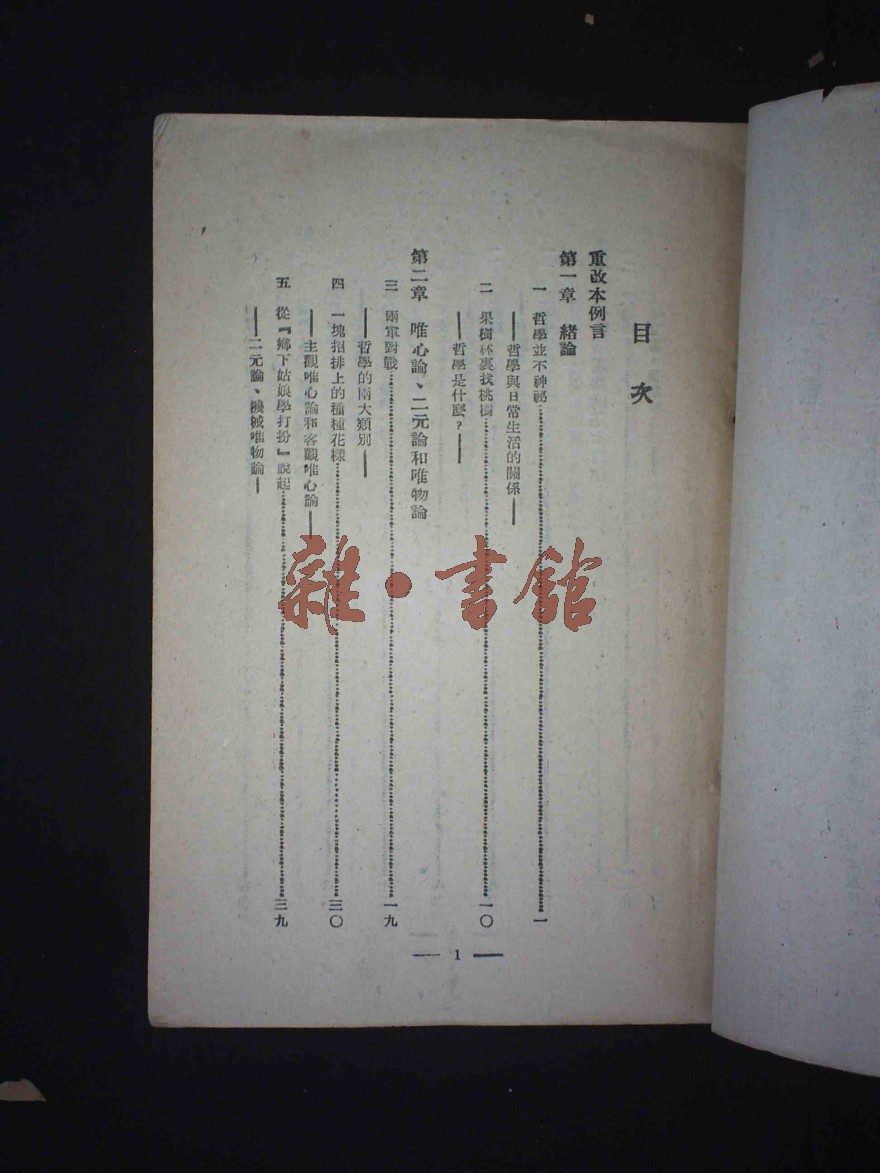 目次
重改本例言
第一章 緒論
一 哲學並不神祕……一
——哲學與日常生活的關係——
二 果樹林裏找桃樹……一〇
——哲學是什麼?——
第二章 唯心論、二元論和唯物論
三 兩軍對戰……一九
——哲學的兩大類別——
四 一塊招排上的種種花樣……三〇
——主觀唯心論和客觀唯心論——
五 從『鄉下姑娘學打扮』說起……三九
——二元論、機械唯物論——
— 1 —
雜·書館